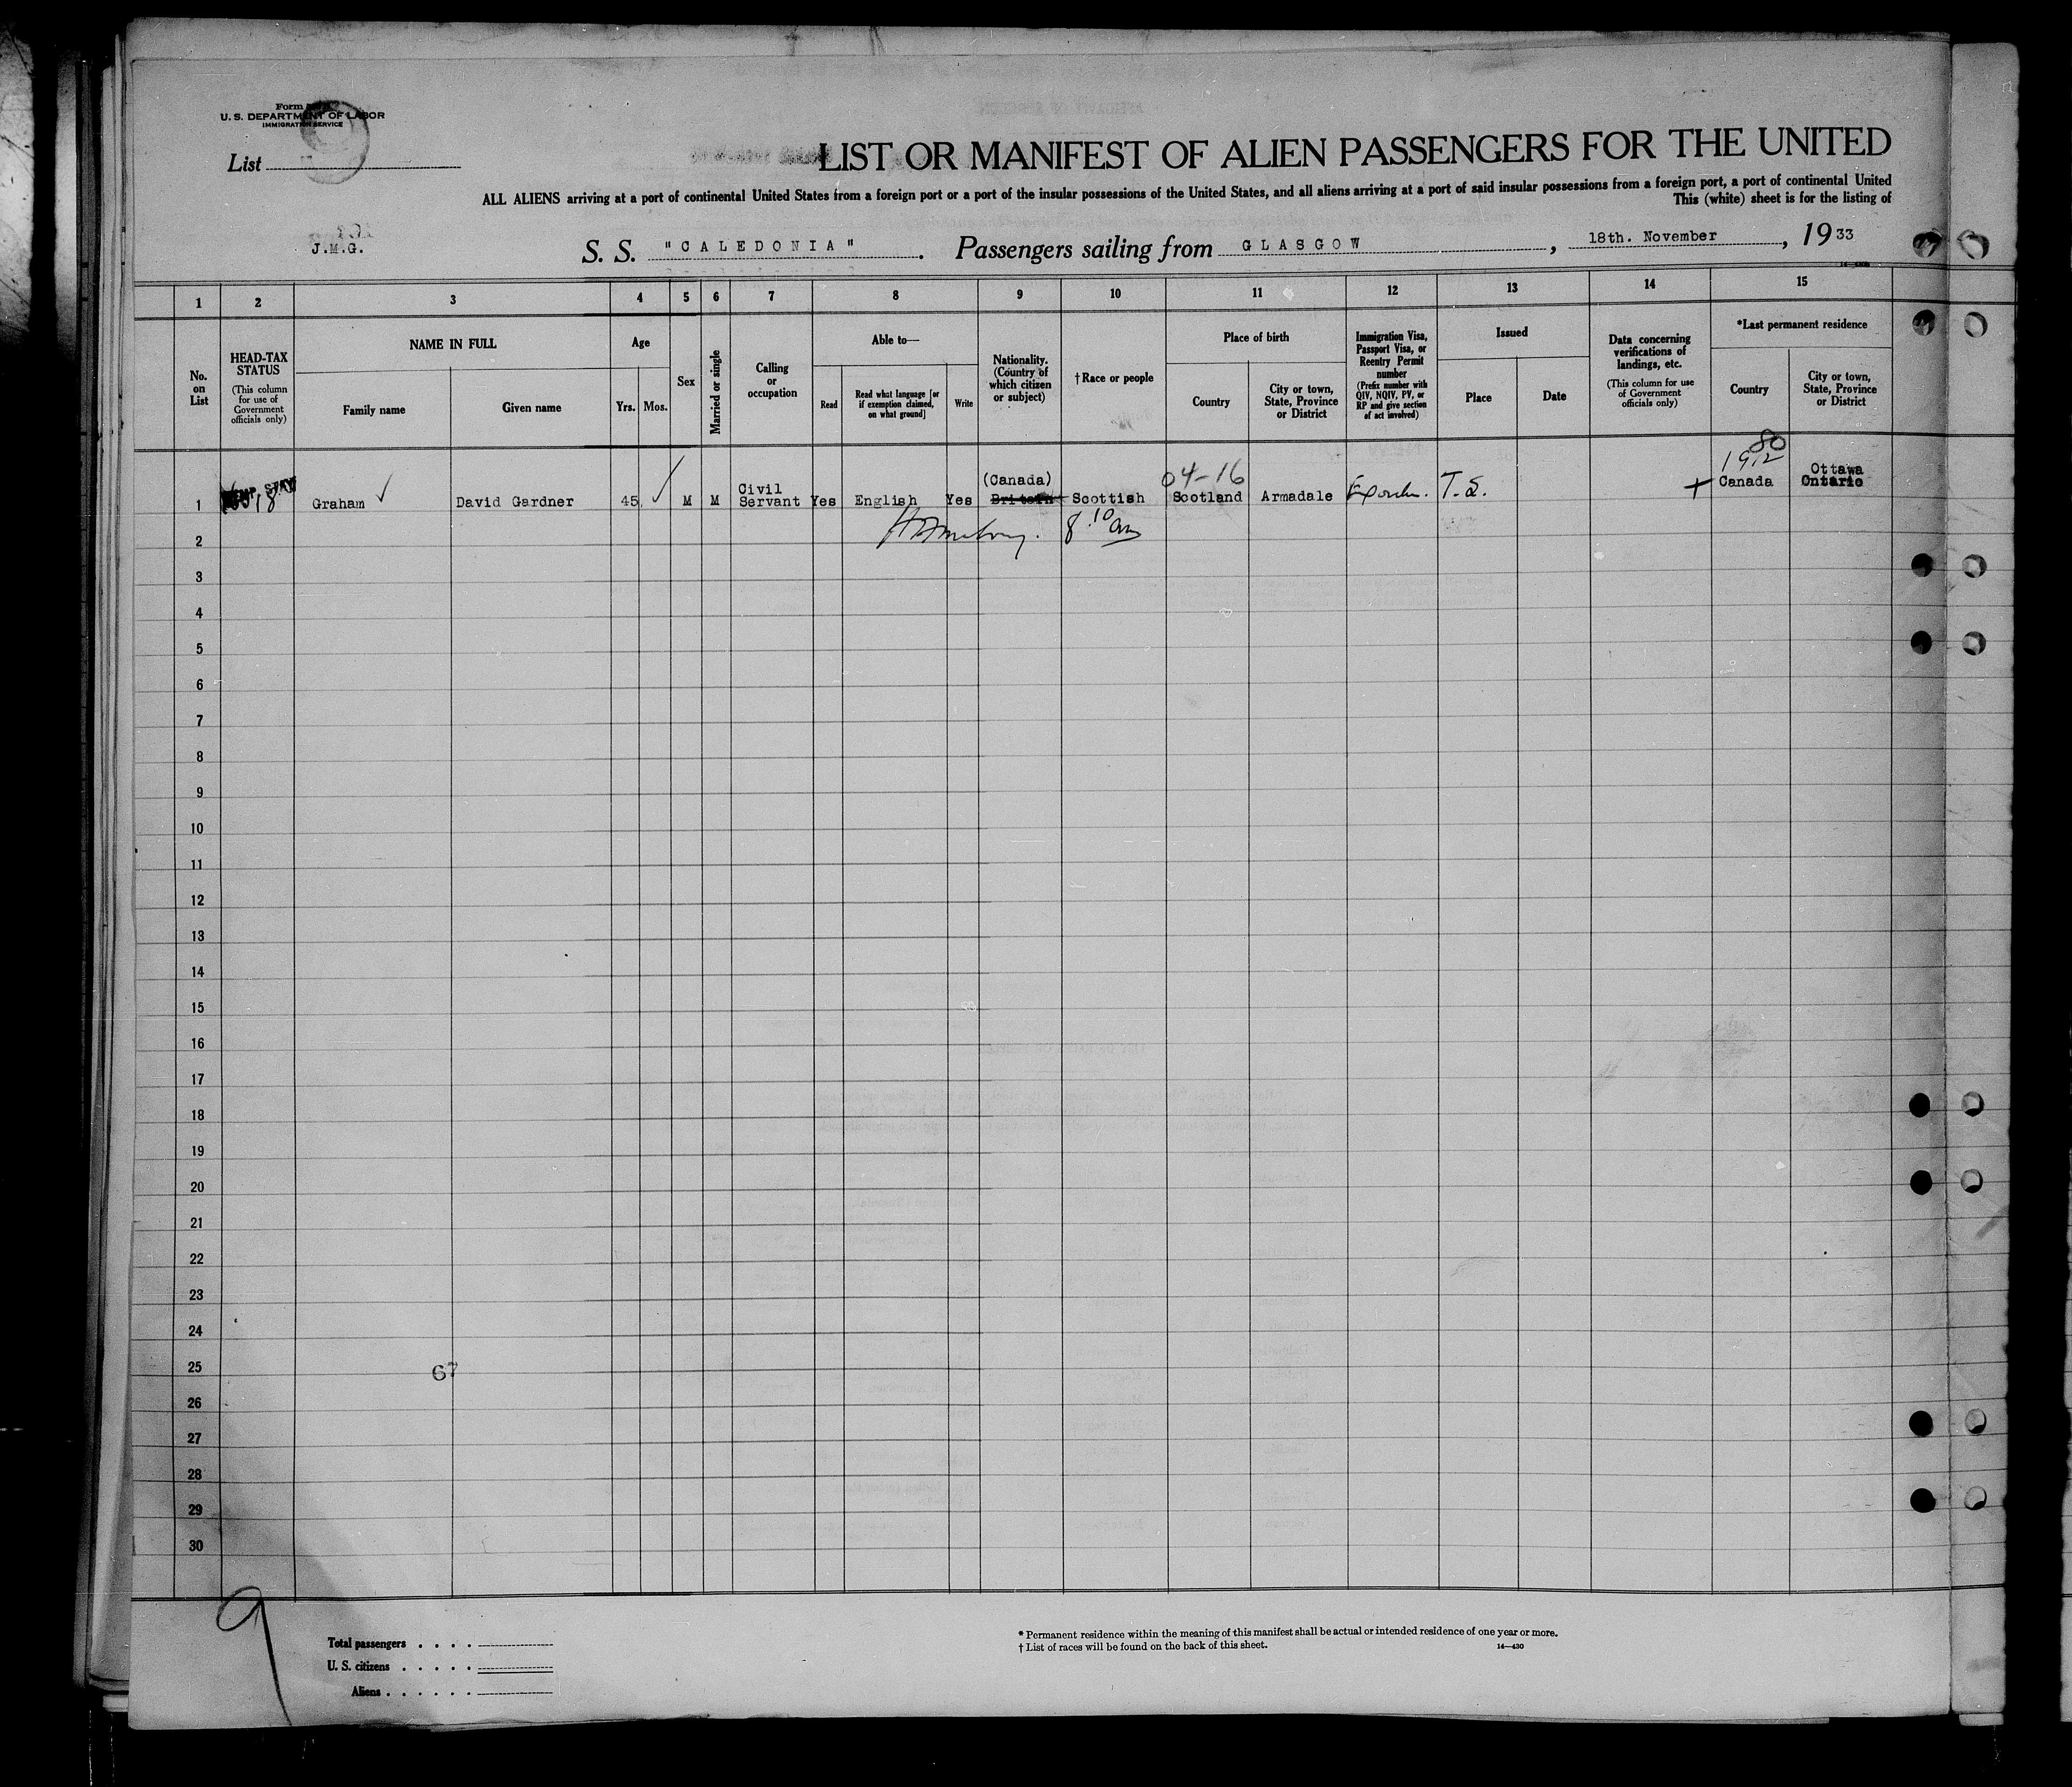 Form
U. S. DEPARTMENT OF LABOR
IMMIGRATION SERVICE
List
LIST OR MANIFEST OF ALIEN PASSENGERS FOR THE UNITED
ALL ALIENS arriving at a port of continental United States from a foreign port or a port of the insular possessions of the United States, and all aliens arriving at a port of said insular possessions from a foreign port, a port of continental United
This (white) sheet is for the listing of
J.M.G.
S. S. "CALEDONIA". Passengers sailing from GLASGOW, 18th. November, 1933
1 2 3 4 5 6 7 8 9 10 11 12 13 14 15
No. on List
HEAD-TAX STATUS
(This column for use of Government officials only)
NAME IN FULL
Family name
Given name
Age
Yrs. Mos.
Sex
Married or single
Calling or occupation
Able to—
Read
Read what language [or if exemption claimed, on what ground]
Write
Nationality. (Country of which citizen or subject)
†Race or people
Place of birth
Country
City or town, State, Province or District
Immigration Visa, Passport Visa, or Reentry Permit number
(Prefix number with QIV, NQIV, PV, or RP and give section of act involved)
Issued
Place
Date
Data concerning verifications of landings, etc.
(This column for use of Government officials only)
*Last permanent residence
Country
City or town, State, Province or District
80
1912
(Canada) 04-16
1 18 Graham ✓ David Gardner 45 ✓ M M Civil Servant Yes English Yes Britain Scottish Scotland Armadale T.S. + Canada Ottawa Ontario
8 10 am
2
3
4
5
6
7
8
9
10
11
12
13
14
15
16
17
18
19
20
21
22
23
24
25
67
26
27
28
29
30
9
Total passengers . . . .
U. S. citizens . . . . .
Aliens . . . . . .
* Permanent residence within the meaning of this manifest shall be actual or intended residence of one year or more.
† List of races will be found on the back of this sheet.
14—430